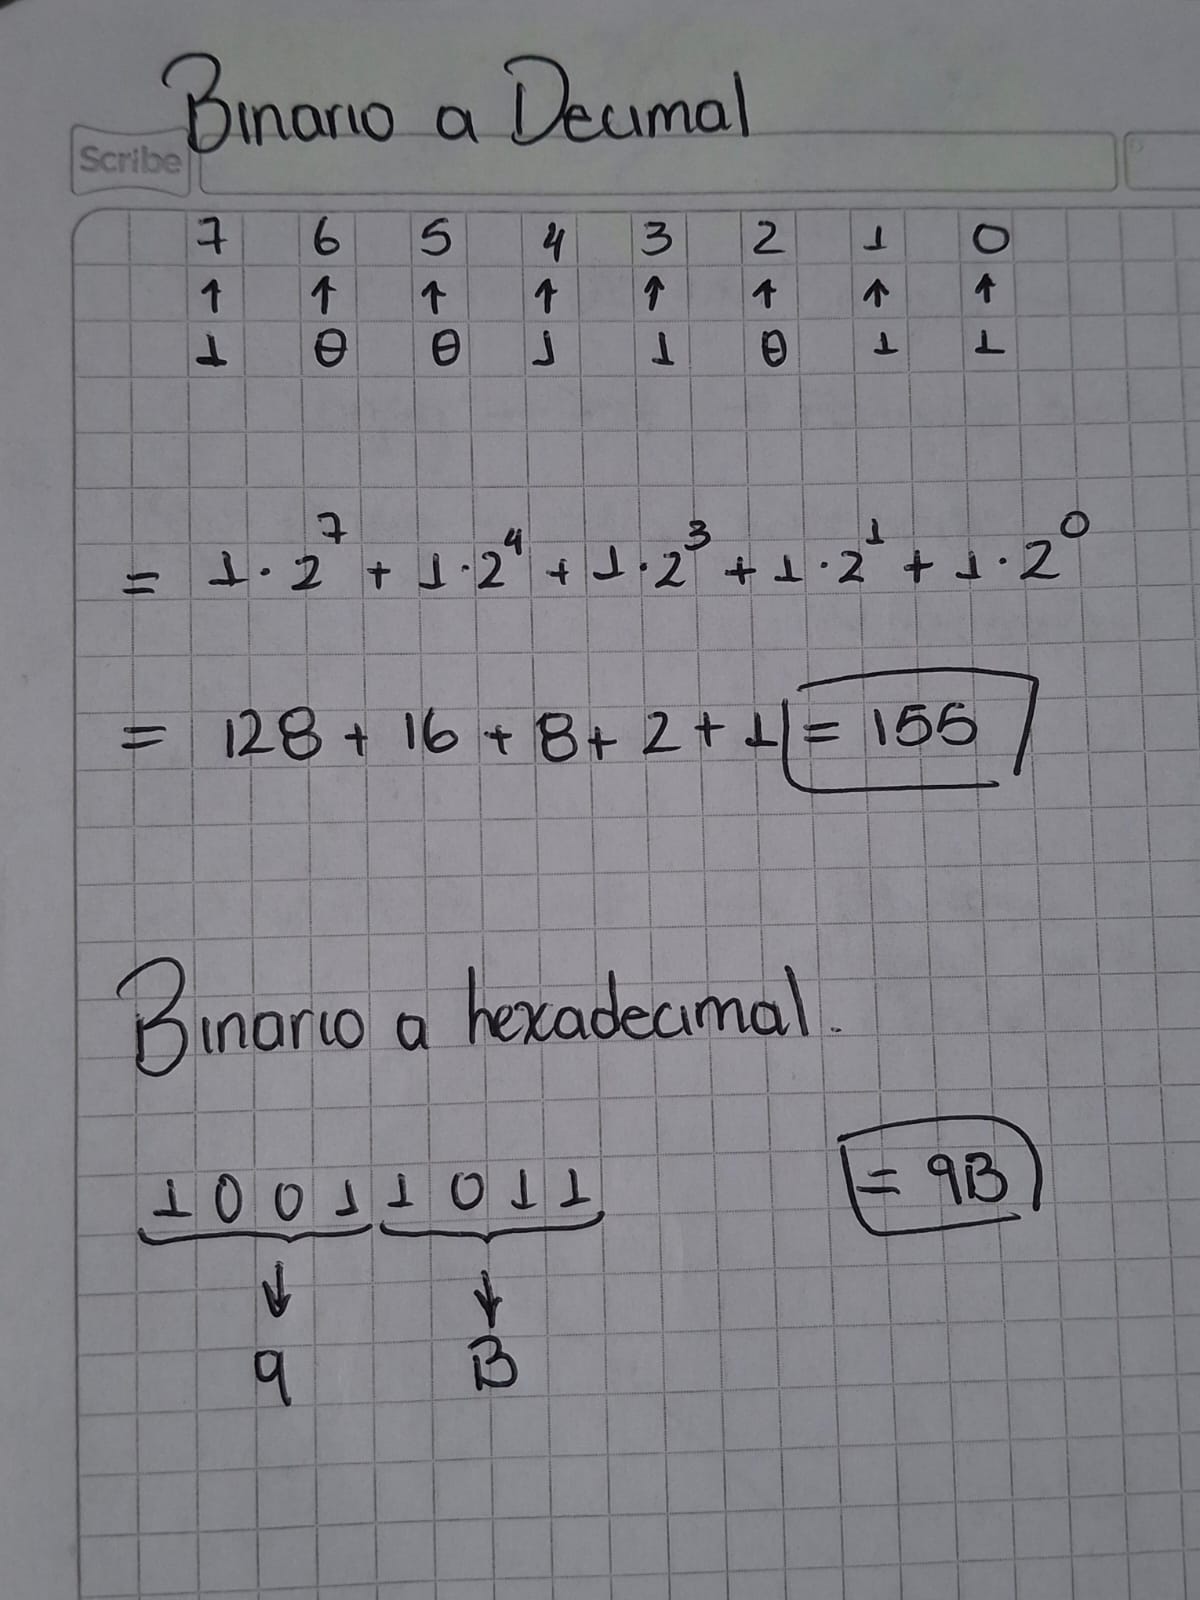 Binario a Decimal
Scribe
7 6 5 4 3 2 1 0
↑ ↑ ↑ ↑ ↑ ↑ ↑ ↑
1 0 0 1 1 0 1 1
= 1·2⁷ + 1·2⁴ + 1·2³ + 1·2¹ + 1·2⁰
= 128 + 16 + 8 + 2 + 1 = 155
Binario a hexadecimal.
1 0 0 1 1 0 1 1
= 9B
↓ ↓
9 B